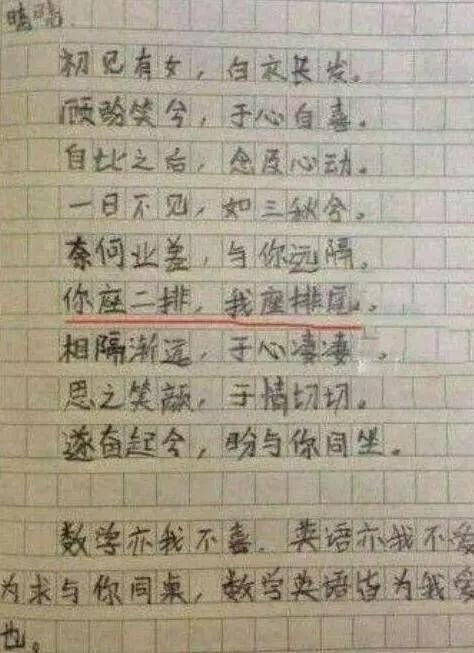 晴晴.
初见有女，白衣长发。
顾盼笑兮，于心自喜。
自此之后，念及心动。
一日不见，如三秋兮。
奈何业差，与你远隔。
你座二排，我座排尾。
相隔渐远，于心凄凄
思之笑颜，于情切切。
遂奋起兮，盼与你同坐。
数学亦我不喜. 英语亦我不爱
为求与你同桌，数学英语皆为我爱
也。